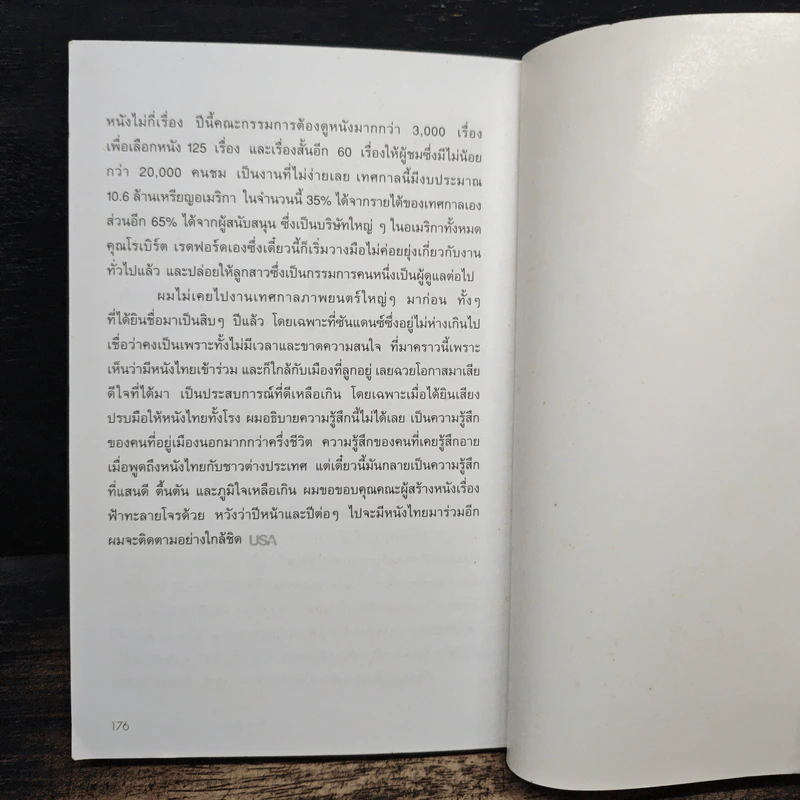 หนังไม่กี่เรื่อง ปีนี้คณะกรรมการต้องดูหนังมากกว่า 3,000 เรื่อง
เพื่อเลือกหนัง 125 เรื่อง และเรื่องสั้นอีก 60 เรื่องให้ผู้ชมซึ่งมีไม่น้อย
กว่า 20,000 คนชม เป็นงานที่ไม่ง่ายเลย เทศกาลนี้มีงบประมาณ
10.6 ล้านเหรียญอเมริกา ในจำนวนนี้ 35% ได้จากรายได้ของเทศกาลเอง
ส่วนอีก 65% ได้จากผู้สนับสนุน ซึ่งเป็นบริษัทใหญ่ ๆ ในอเมริกาทั้งหมด
คุณโรเบิร์ต เรดฟอร์ดเองซึ่งเดี๋ยวนี้ก็เริ่มวางมือไม่ค่อยยุ่งเกี่ยวกับงาน
ทั่วไปแล้ว และปล่อยให้ลูกสาวซึ่งเป็นกรรมการคนหนึ่งเป็นผู้ดูแลต่อไป
ผมไม่เคยไปงานเทศกาลภาพยนตร์ใหญ่ๆ มาก่อน ทั้งๆ
ที่ได้ยินชื่อมาเป็นสิบๆ ปีแล้ว โดยเฉพาะที่ซันแดนซ์ซึ่งอยู่ไม่ห่างเกินไป
เชื่อว่าคงเป็นเพราะทั้งไม่มีเวลาและขาดความสนใจ ที่มาคราวนี้เพราะ
เห็นว่ามีหนังไทยเข้าร่วม และก็ใกล้กับเมืองที่ลูกอยู่ เลยฉวยโอกาสมาเสีย
ดีใจที่ได้มา เป็นประสบการณ์ที่ดีเหลือเกิน โดยเฉพาะเมื่อได้ยินเสียง
ปรบมือให้หนังไทยทั้งโรง ผมอธิบายความรู้สึกนี้ไม่ได้เลย เป็นความรู้สึก
ของคนที่อยู่เมืองนอกมากกว่าครึ่งชีวิต ความรู้สึกของคนที่เคยรู้สึกอาย
เมื่อพูดถึงหนังไทยกับชาวต่างประเทศ แต่เดี๋ยวนี้มันกลายเป็นความรู้สึก
ที่แสนดี ตื้นตัน และภูมิใจเหลือเกิน ผมขอขอบคุณคณะผู้สร้างหนังเรื่อง
ฟ้าทะลายโจรด้วย หวังว่าปีหน้าและปีต่อๆ ไปจะมีหนังไทยมาร่วมอีก
ผมจะติดตามอย่างใกล้ชิด USA
176